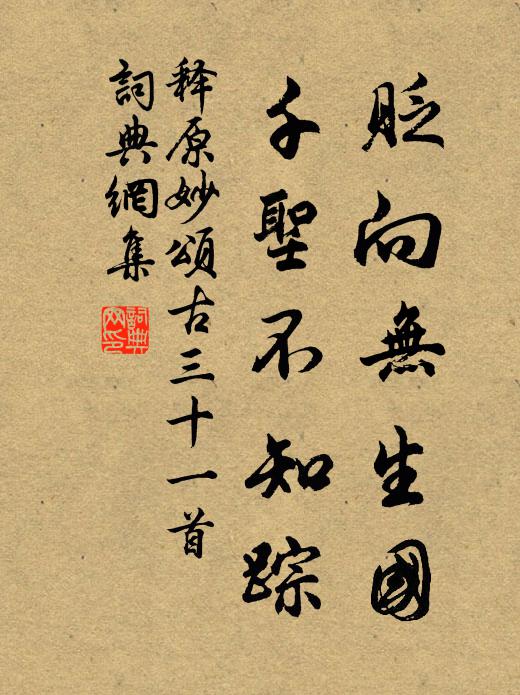 貶向無生國
千聖不知踪
释原妙頌古三十一首
詞典網集
詞典網印